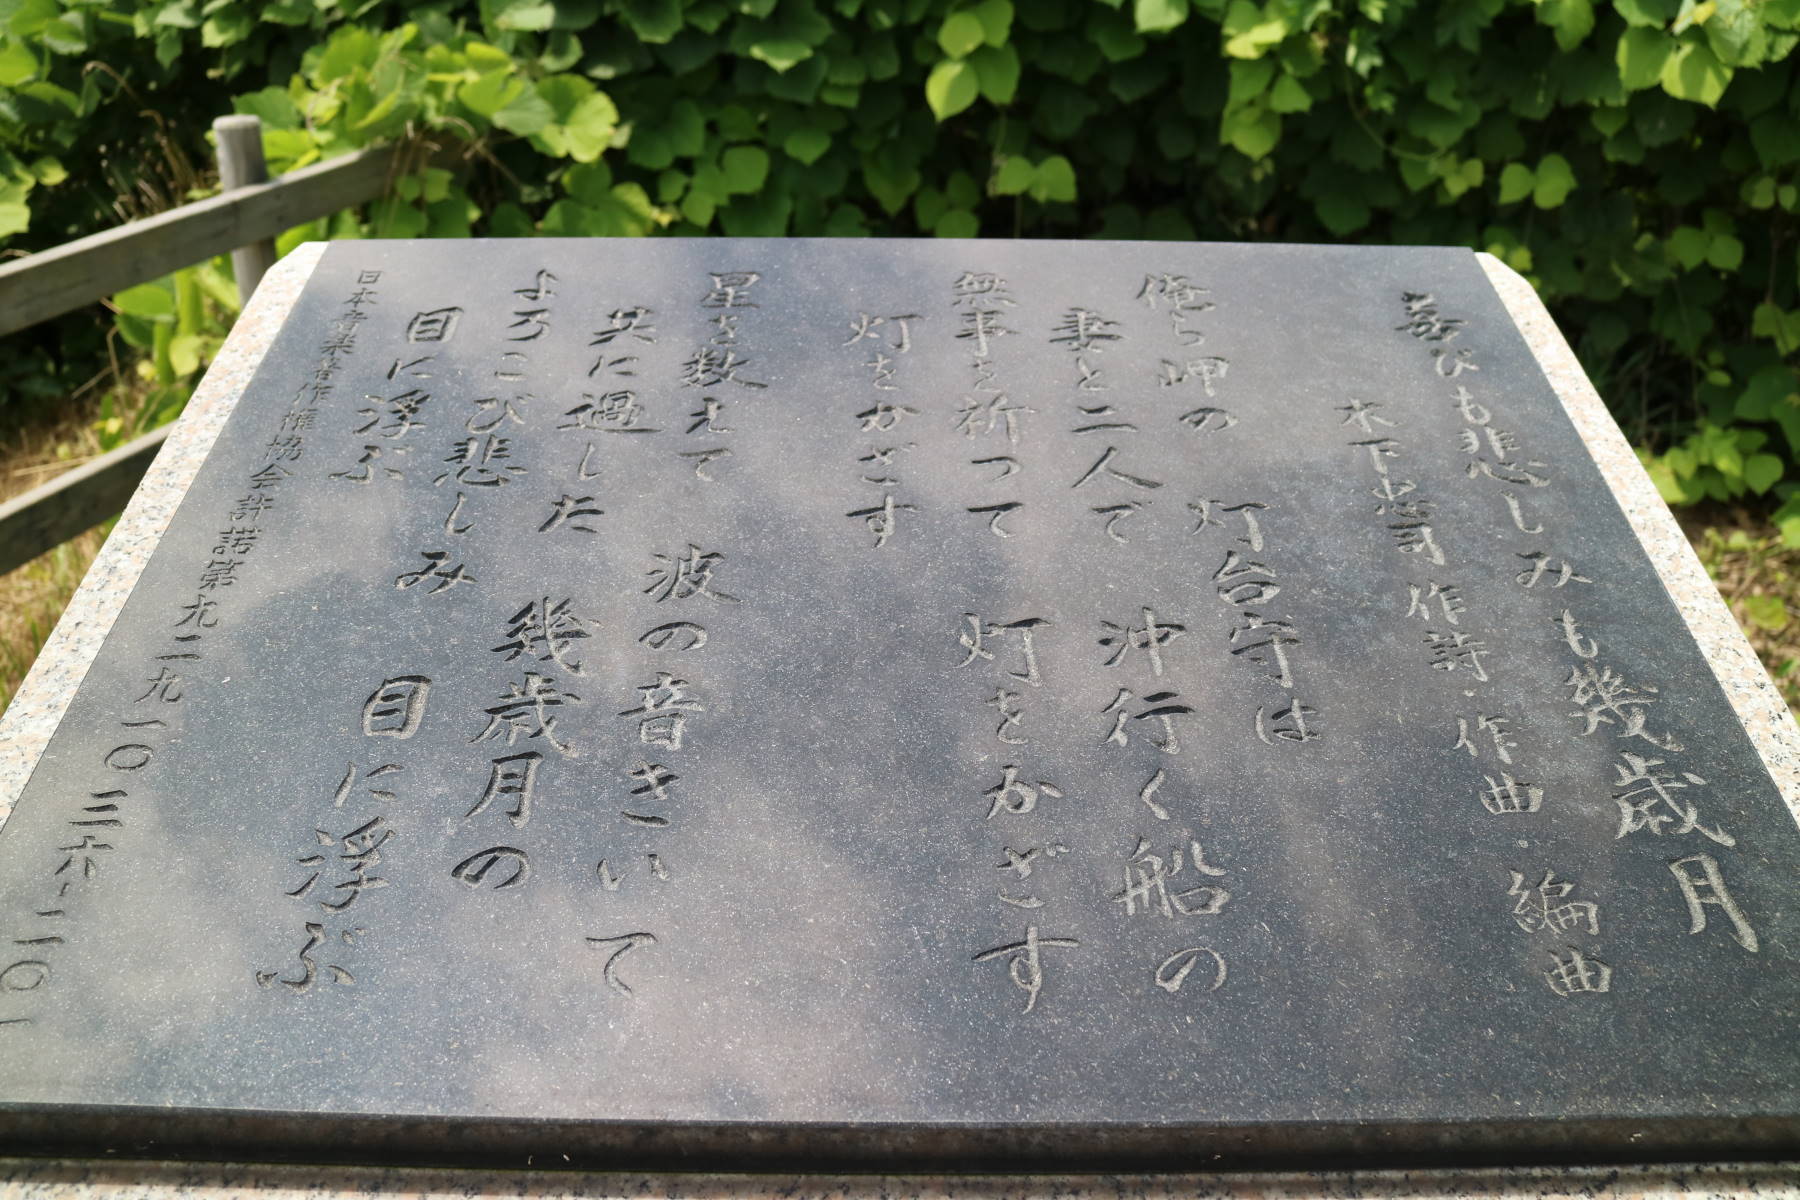 喜びも悲しみも幾歳月
木下忠司 作詩・作曲・編曲
俺ら岬の 灯台守は
妻と二人で 沖行く船の
無事を祈って 灯をかざす
灯をかざす
星を数えて 波の音きいて
共に過した 幾歳月の
よろこび悲しみ 目に浮ぶ
目に浮ぶ
日本音楽著作権協会許諾第九二九一〇三六-二〇一